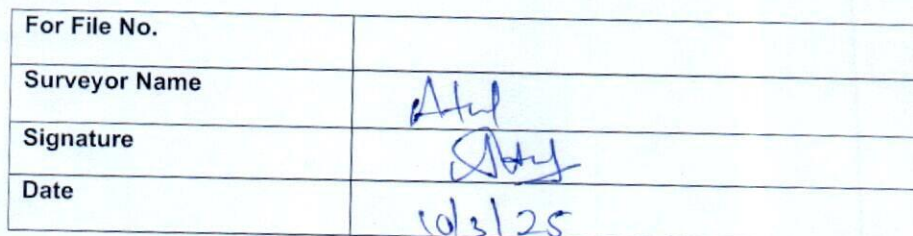 For File No.
Surveyor Name Atul
Signature Atul
Date 10/3/25